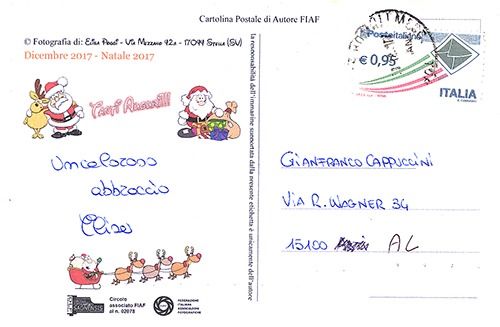 Cartolina Postale di Autore FIAF
© Fotografia di: Elisa Poggi - Via Mezzano 42A - 17049 Stella (SV)
Dicembre 2017 - Natale 2017
Tanti Auguri!!!
Un caloroso
abbraccio
Elisa
Circolo
associato FIAF
al n. 02078
FEDERAZIONE
ITALIANA
ASSOCIAZIONI
FOTOGRAFICHE
la responsabilità dell'immagine supportata dalla presente etichetta è unicamente dell'autore
Posteitaliane
€ 0,95
ITALIA
GIANFRANCO CAPPUCCINI
VIA R. WAGNER 34
15100 AL